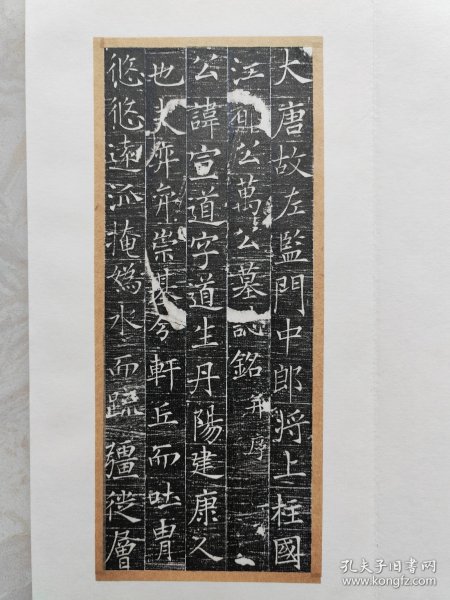 大唐故左監門中郎將上柱國
江郡公萬公墓誌銘并序
公諱宣道字道生丹陽建康人
也夫弈弈崇基分軒丘而吐胄
悠悠遠派掩媯水而疏疆從層
孔夫子旧书网
www.kongfz.com